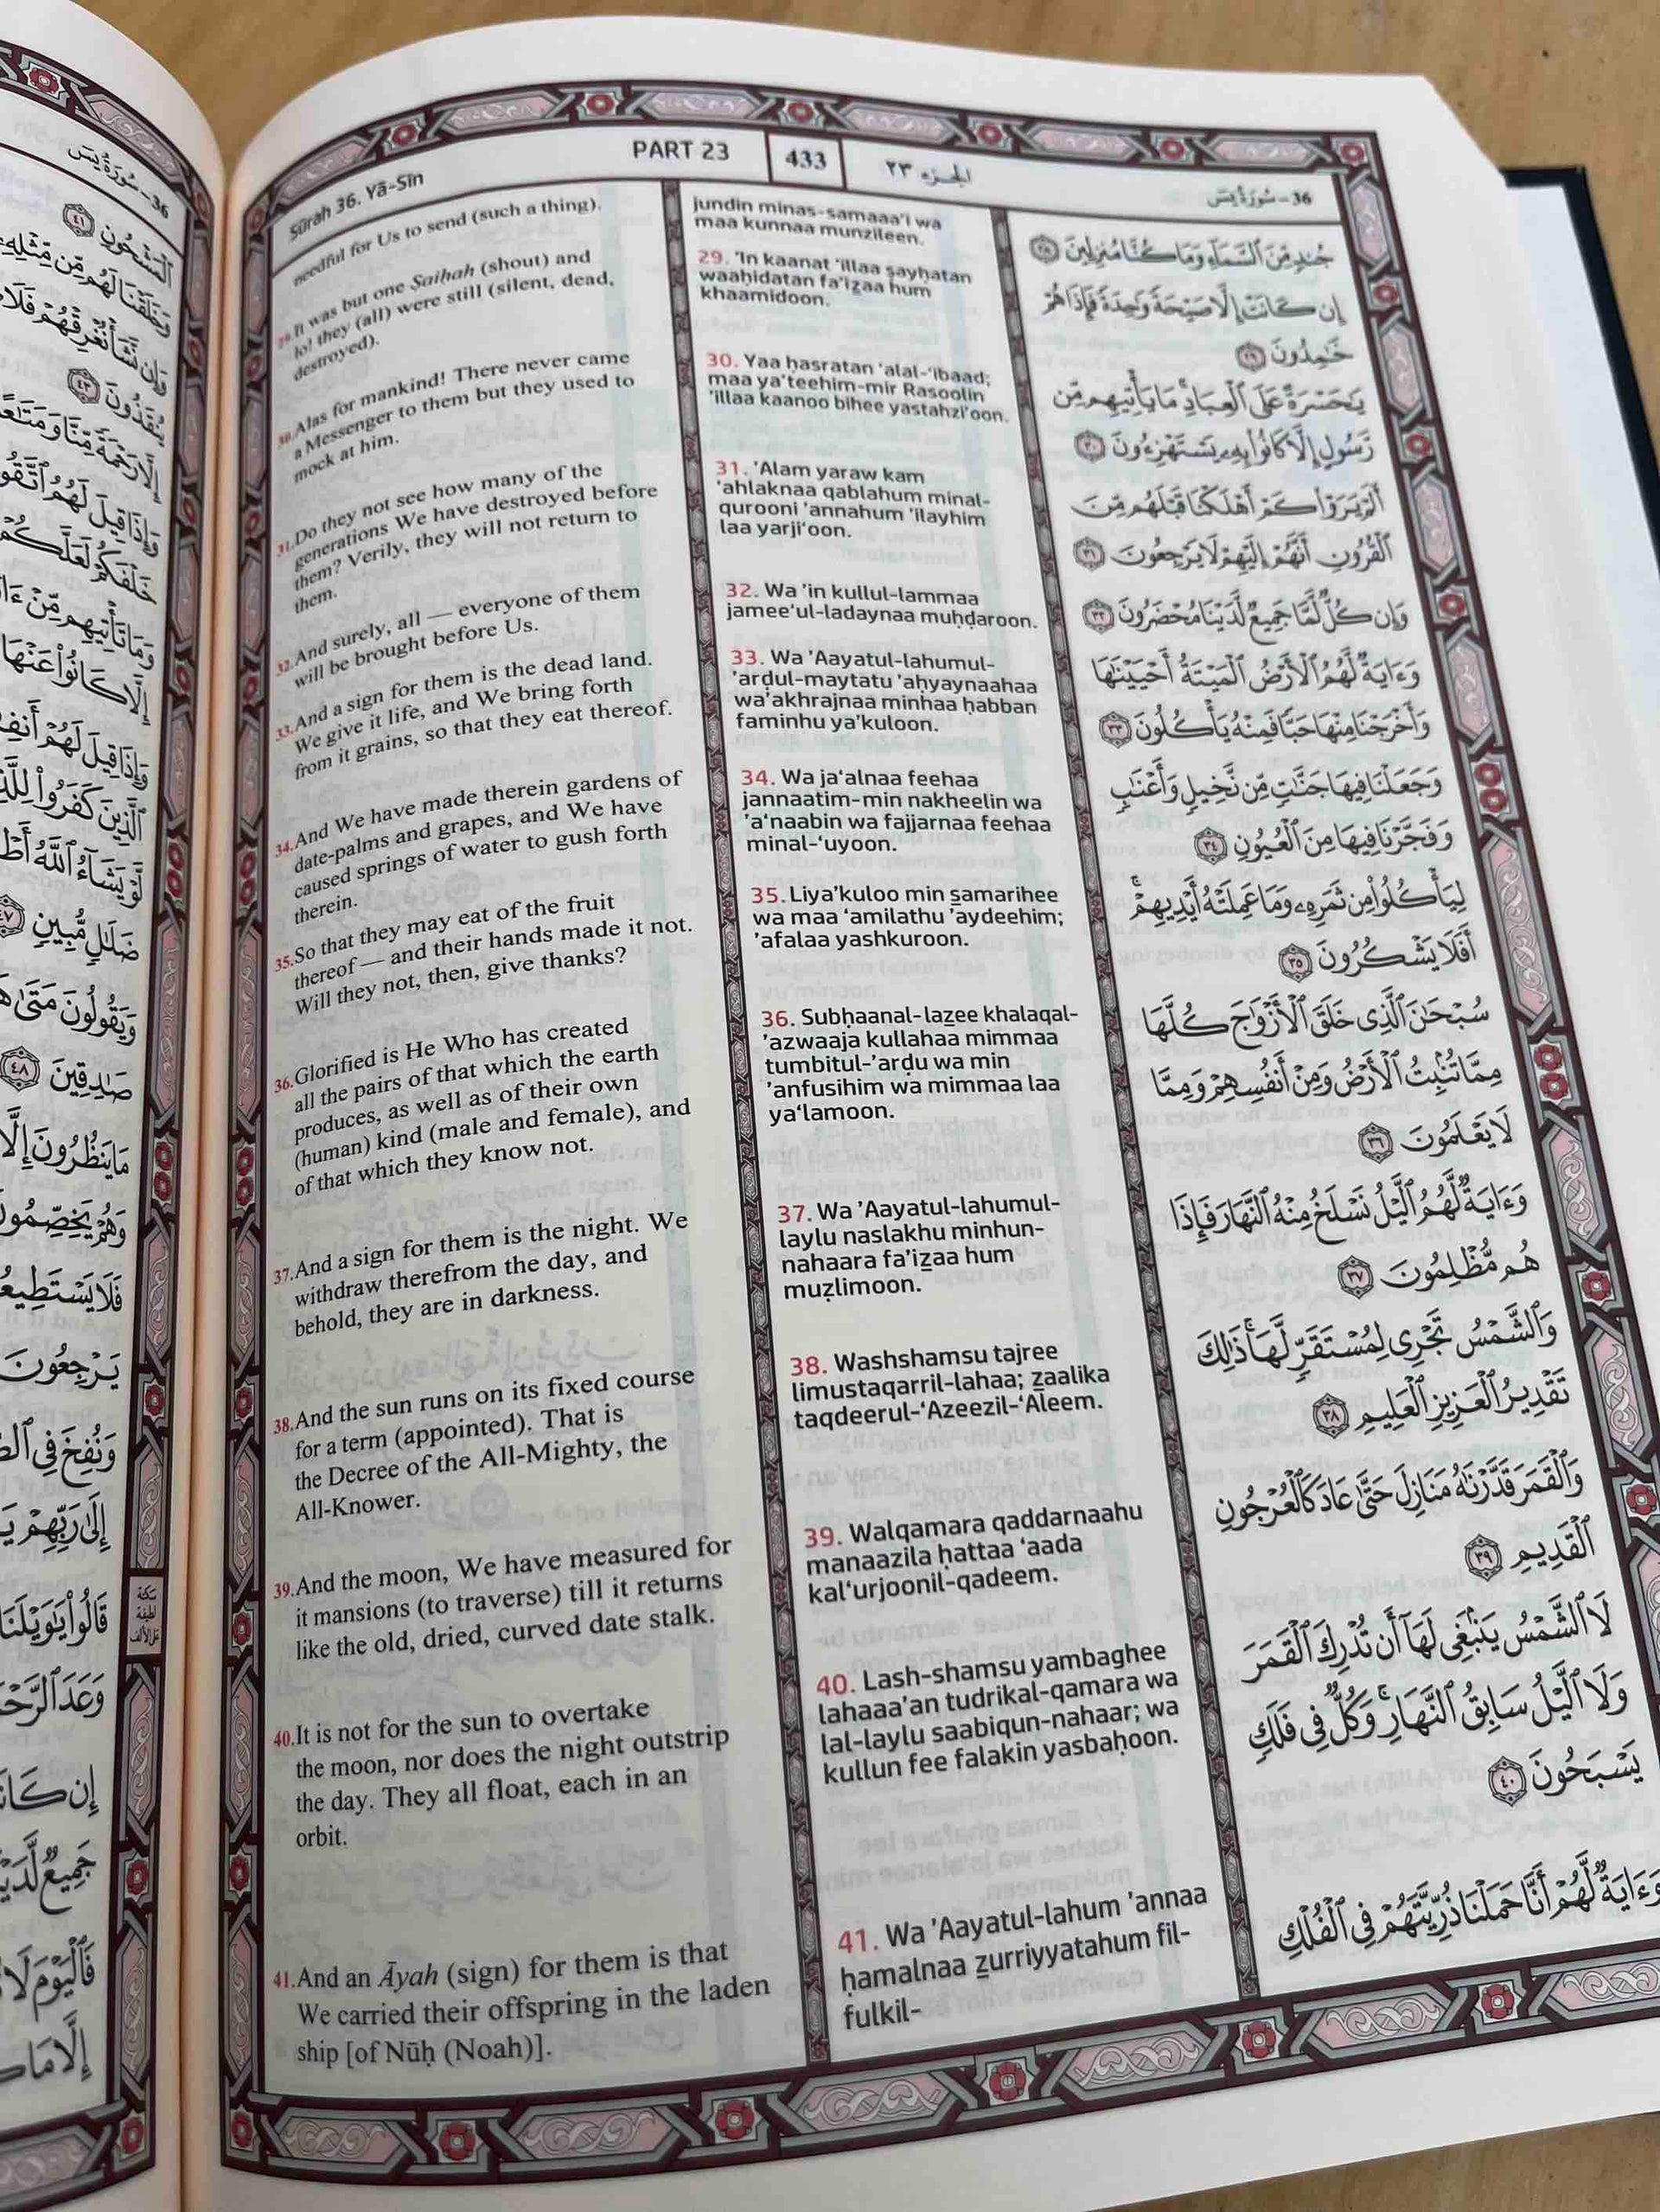 Sūrah 36. Yā-Sīn
PART 23
433
الجزء ٢٣
36 - سُورَةُ يسٓ
needful for Us to send (such a thing).
29.It was but one Saiḥah (shout) and
lo! they (all) were still (silent, dead,
destroyed).
30.Alas for mankind! There never came
a Messenger to them but they used to
mock at him.
31.Do they not see how many of the
generations We have destroyed before
them? Verily, they will not return to
them.
32.And surely, all — everyone of them
will be brought before Us.
33.And a sign for them is the dead land.
We give it life, and We bring forth
from it grains, so that they eat thereof.
34.And We have made therein gardens of
date-palms and grapes, and We have
caused springs of water to gush forth
therein.
35.So that they may eat of the fruit
thereof — and their hands made it not.
Will they not, then, give thanks?
36.Glorified is He Who has created
all the pairs of that which the earth
produces, as well as of their own
(human) kind (male and female), and
of that which they know not.
37.And a sign for them is the night. We
withdraw therefrom the day, and
behold, they are in darkness.
38.And the sun runs on its fixed course
for a term (appointed). That is
the Decree of the All-Mighty, the
All-Knower.
39.And the moon, We have measured for
it mansions (to traverse) till it returns
like the old, dried, curved date stalk.
40.It is not for the sun to overtake
the moon, nor does the night outstrip
the day. They all float, each in an
orbit.
41.And an Āyah (sign) for them is that
We carried their offspring in the laden
ship [of Nūḥ (Noah)].
jundin minas-samaaa’i wa
maa kunnaa munzileen.
29. ’In kaanat ’illaa ṣayḥatan
waaḥidatan fa’iz̲aa hum
khaamidoon.
30. Yaa ḥasratan ‘alal-‘ibaad;
maa ya’teehim-mir Rasoolin
’illaa kaanoo bihee yastahzi’oon.
31. ’Alam yaraw kam
’ahlaknaa qablahum minal-
qurooni ’annahum ’ilayhim
laa yarji‘oon.
32. Wa ’in kullul-lammaa
jamee‘ul-ladaynaa muḥḍaroon.
33. Wa ’Aayatul-lahumul-
’arḍul-maytatu ’aḥyaynaahaa
wa’akhrajnaa minhaa ḥabban
faminhu ya’kuloon.
34. Wa ja‘alnaa feehaa
jannaatim-min nakheelin wa
’a‘naabin wa fajjarnaa feehaa
minal-‘uyoon.
35. Liya’kuloo min s̲amarihee
wa maa ‘amilathu ’aydeehim;
’afalaa yashkuroon.
36. Subḥaanal-laz̲ee khalaqal-
’azwaaja kullahaa mimmaa
tumbitul-’arḍu wa min
’anfusihim wa mimmaa laa
ya‘lamoon.
37. Wa ’Aayatul-lahumul-
laylu naslakhu minhun-
nahaara fa’iz̲aa hum
muẓlimoon.
38. Washshamsu tajree
limustaqarril-lahaa; z̲aalika
taqdeerul-‘Azeezil-‘Aleem.
39. Walqamara qaddarnaahu
manaazila ḥattaa ‘aada
kal‘urjoonil-qadeem.
40. Lash-shamsu yambaghee
lahaaa’an tudrikal-qamara wa
lal-laylu saabiqun-nahaar; wa
kullun fee falakin yasbaḥoon.
41. Wa ’Aayatul-lahum ’annaa
ḥamalnaa z̲urriyyatahum fil-
fulkil-
جُندٍ مِّنَ ٱلسَّمَآءِ وَمَا كُنَّا مُنزِلِينَ ٢٨
إِن كَانَتْ إِلَّا صَيْحَةً وَٰحِدَةً فَإِذَا هُمْ
خَٰمِدُونَ ٢٩
يَٰحَسْرَةً عَلَى ٱلْعِبَادِ ۚ مَا يَأْتِيهِم مِّن
رَّسُولٍ إِلَّا كَانُوا۟ بِهِۦ يَسْتَهْزِءُونَ ٣٠
أَلَمْ يَرَوْا۟ كَمْ أَهْلَكْنَا قَبْلَهُم مِّنَ
ٱلْقُرُونِ أَنَّهُمْ إِلَيْهِمْ لَا يَرْجِعُونَ ٣١
وَإِن كُلٌّ لَّمَّا جَمِيعٌ لَّدَيْنَا مُحْضَرُونَ ٣٢
وَءَايَةٌ لَّهُمُ ٱلْأَرْضُ ٱلْمَيْتَةُ أَحْيَيْنَٰهَا
وَأَخْرَجْنَا مِنْهَا حَبًّا فَمِنْهُ يَأْكُلُونَ ٣٣
وَجَعَلْنَا فِيهَا جَنَّٰتٍ مِّن نَّخِيلٍ وَأَعْنَٰبٍ
وَفَجَّرْنَا فِيهَا مِنَ ٱلْعُيُونِ ٣٤
لِيَأْكُلُوا۟ مِن ثَمَرِهِۦ وَمَا عَمِلَتْهُ أَيْدِيهِمْ ۖ
أَفَلَا يَشْكُرُونَ ٣٥
سُبْحَٰنَ ٱلَّذِى خَلَقَ ٱلْأَزْوَٰجَ كُلَّهَا
مِمَّا تُنۢبِتُ ٱلْأَرْضُ وَمِنْ أَنفُسِهِمْ وَمِمَّا
لَا يَعْلَمُونَ ٣٦
وَءَايَةٌ لَّهُمُ ٱلَّيْلُ نَسْلَخُ مِنْهُ ٱلنَّهَارَ فَإِذَا
هُم مُّظْلِمُونَ ٣٧
وَٱلشَّمْسُ تَجْرِى لِمُسْتَقَرٍّ لَّهَا ۚ ذَٰلِكَ
تَقْدِيرُ ٱلْعَزِيزِ ٱلْعَلِيمِ ٣٨
وَٱلْقَمَرَ قَدَّرْنَٰهُ مَنَازِلَ حَتَّىٰ عَادَ كَٱلْعُرْجُونِ
ٱلْقَدِيمِ ٣٩
لَا ٱلشَّمْسُ يَنۢبَغِى لَهَآ أَن تُدْرِكَ ٱلْقَمَرَ
وَلَا ٱلَّيْلُ سَابِقُ ٱلنَّهَارِ ۚ وَكُلٌّ فِى فَلَكٍ
يَسْبَحُونَ ٤٠
وَءَايَةٌ لَّهُمْ أَنَّا حَمَلْنَا ذُرِّيَّتَهُمْ فِى ٱلْفُلْكِ
36 - سُورَةُ يسٓ
ٱلْمَشْحُونِ ٤١
وَخَلَقْنَا لَهُم مِّن مِّثْلِهِ
وَإِن نَّشَأْ نُغْرِقْهُمْ فَلَا
يُنقَذُونَ ٤٣
إِلَّا رَحْمَةً مِّنَّا وَمَتَٰعًا
وَإِذَا قِيلَ لَهُمُ ٱتَّقُوا۟
خَلْفَكُمْ لَعَلَّكُمْ
وَمَا تَأْتِيهِم مِّنْ ءَا
إِلَّا كَانُوا۟ عَنْهَا
وَإِذَا قِيلَ لَهُمْ أَنفِقُ
ٱلَّذِينَ كَفَرُوا۟ لِلَّذِ
لَّوْ يَشَآءُ ٱللَّهُ أَطْ
ضَلَٰلٍ مُّبِينٍ ٤٧
وَيَقُولُونَ مَتَىٰ هَ
صَٰدِقِينَ ٤٨
مَا يَنظُرُونَ إِلَّا
وَهُمْ يَخِصِّمُونَ
فَلَا يَسْتَطِيعُ
يَرْجِعُونَ
وَنُفِخَ فِى ٱلصُّ
إِلَىٰ رَبِّهِمْ يَ
قَالُوا۟ يَٰوَيْلَنَا
وَعَدَ ٱلرَّحْمَ
إِن كَانَ
جَمِيعٌ لَّدَيْ
فَٱلْيَوْمَ لَا
إِلَّا مَا كُ
سكتة
لطيفة
على الألف